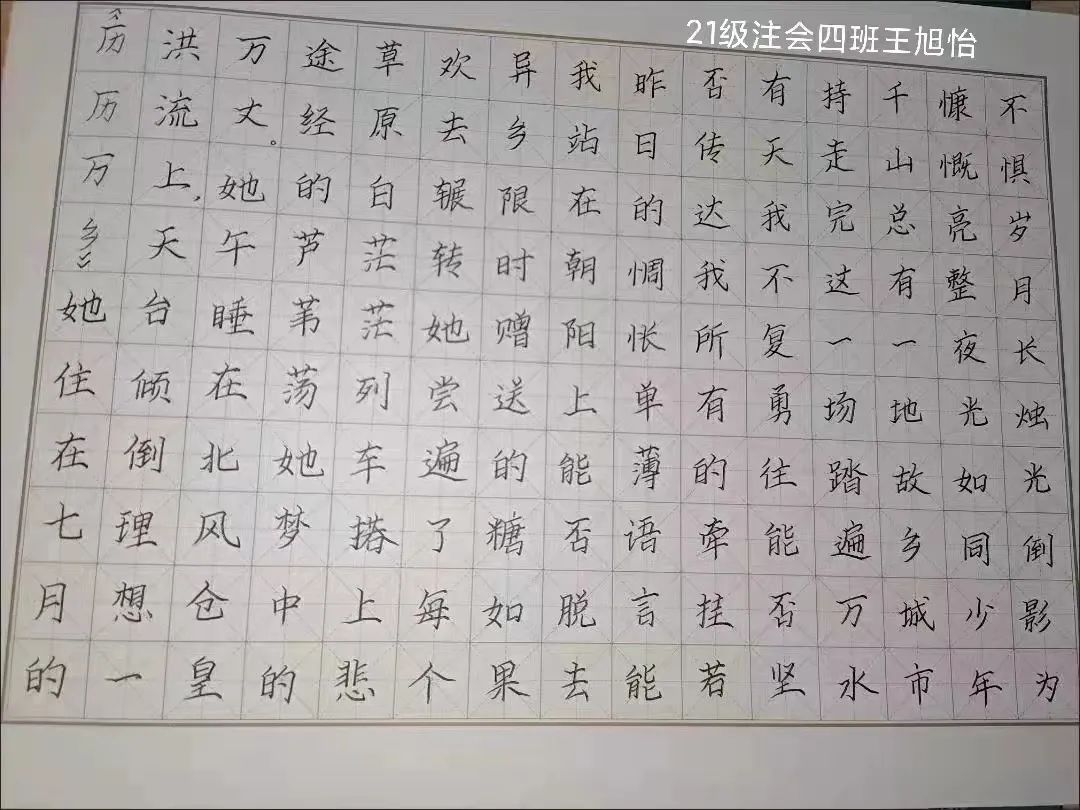 21级注会四班王旭怡
《历历万乡》她住在七月的
洪流上,天台倾倒理想一
万丈。她午睡在北风仓皇
途经的芦苇荡她梦中的
草原白茫茫列车搭上悲
欢去辗转她尝遍了每个
异乡限时赠送的糖如果
我站在朝阳上能否脱去
昨日的惆怅单薄语言能
否传达我所有的牵挂若
有天我不复勇往能否坚
持走完这一场踏遍万水
千山总有一地故乡城市
慷慨亮整夜光如同少年
不惧岁月长烛光倒影为